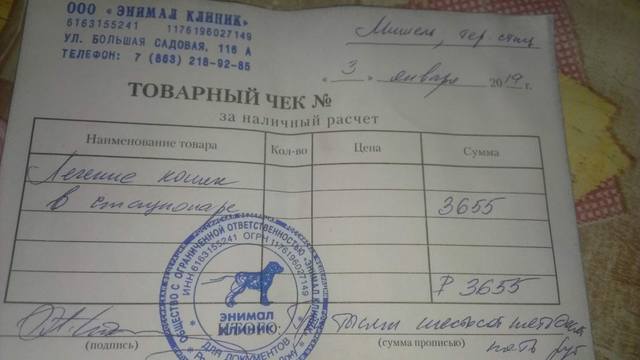 ООО «ЭНИМАЛ КЛИНИК»
6163155241 1176196027149
УЛ. БОЛЬШАЯ САДОВАЯ, 116 А
ТЕЛЕФОН: 7 (863) 218-92-85
Мишель,
« 3 » января 2019 г.
ТОВАРНЫЙ ЧЕК №
за наличный расчет
Наименование товара Кол-во Цена Сумма
Лечение кошек
в стационаре 3655
₽ 3655
ОБЩЕСТВО С ОГРАНИЧЕННОЙ ОТВЕТСТВЕННОСТЬЮ «ЭНИМАЛ КЛИНИК»
ИНН 6163155241 ОГРН 1176196027149
ЭНИМАЛ
КЛИНИК
ДЛЯ ДОКУМЕНТОВ
Три тысячи шестьсот пятьдесят
пять руб
(подпись) (сумма прописью)